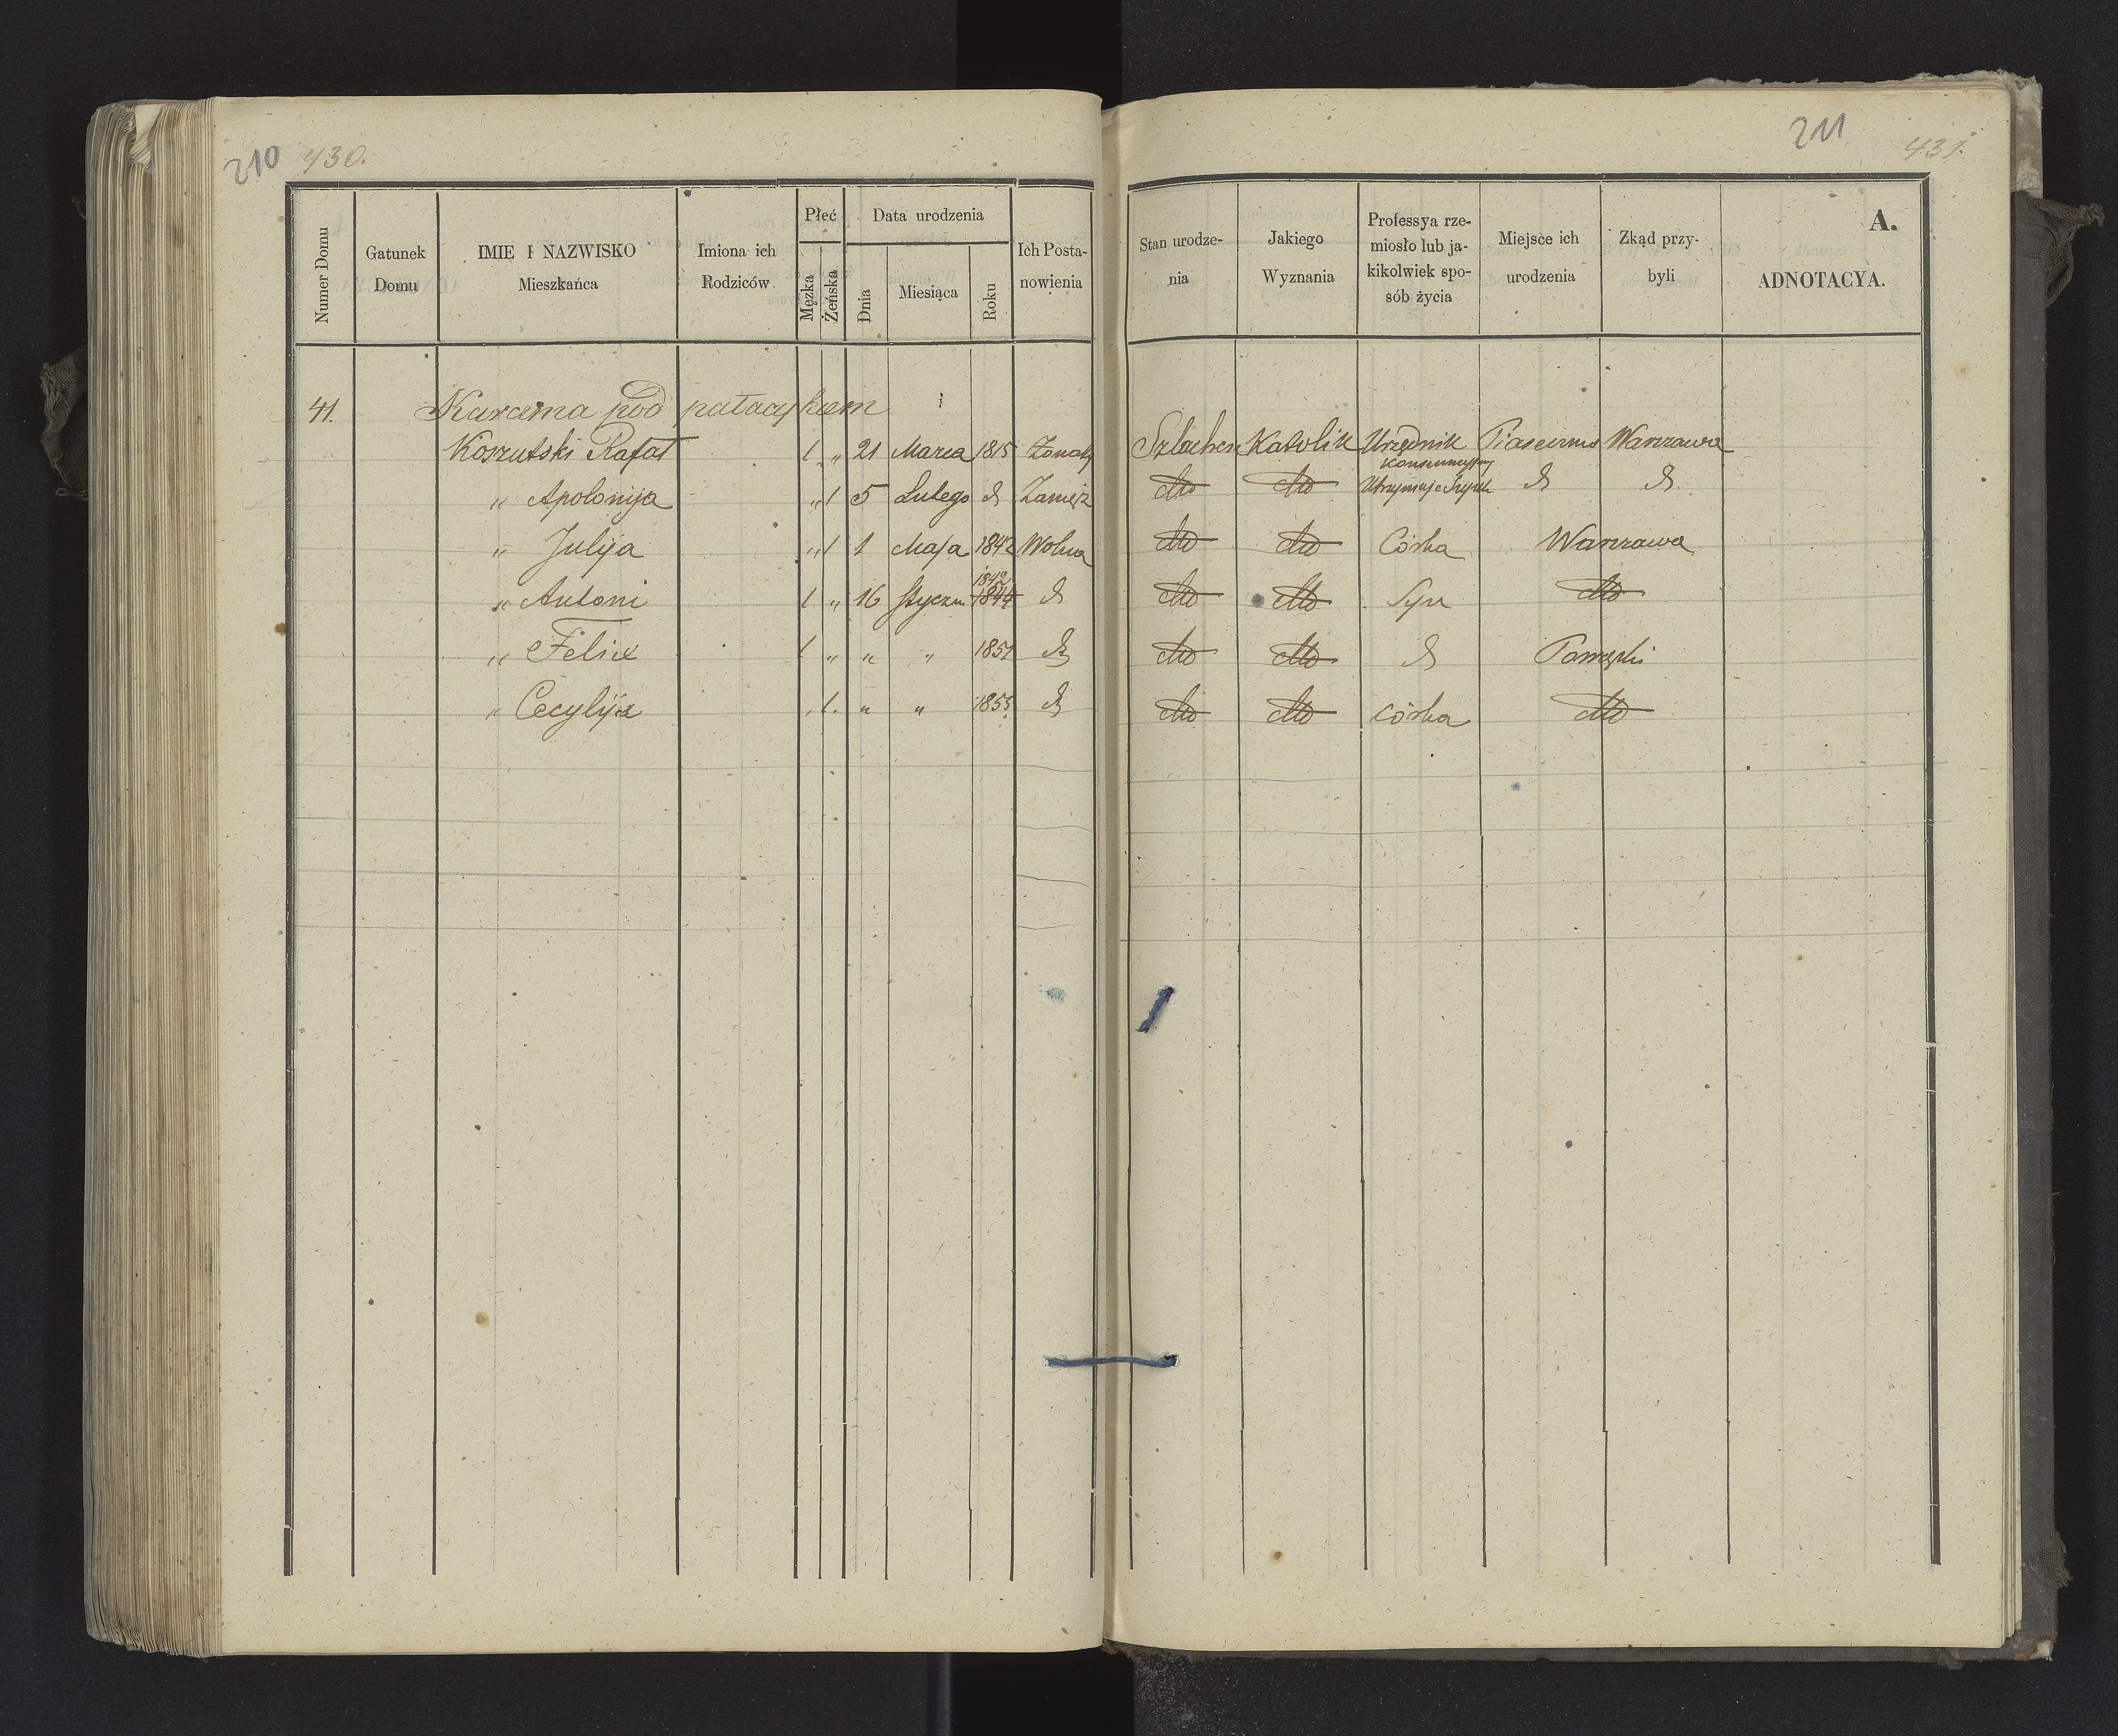 210 430.
211 431.
Numer Domu
Gatunek Domu
IMIE I NAZWISKO Mieszkańca
Imiona ich Rodziców
Płeć
Męzka
Żeńska
Data urodzenia
Dnia
Miesiąca
Roku
Ich Posta-
nowienia
Stan urodze-
nia
Jakiego Wyznania
Professya rze-
miosło lub ja-
kikolwiek spo-
sób życia
Miejsce ich urodzenia
Zkąd przy-
byli
A.
ADNOTACYA.
41. Karczma pod pałacykiem
Koszutski Rafał 1 „ 21 Marca 1815 Żonaty Szlachcic Katolik Urzędnik Konsumcyjny Piaseczno Warszawa
„ Apolonija „ 1 5 Lutego d Zamęż dtto dtto Utrzymuje Szynk d d
„ Julija „ 1 1 Maja 1842 Wolna dtto dtto Córka Warszawa
„ Antoni 1 „ 16 Styczn 1844 1842 d dtto dtto Syn dtto
„ Felix 1 „ „ „ 1851 d dtto dtto d Powązki
„ Cecylija „ 1. „ „ 1855 d dtto dtto córka dtto